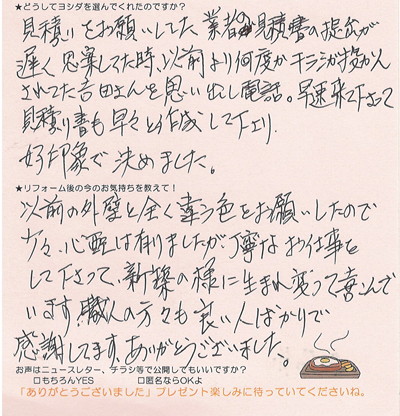 ★どうしてヨシダを選んでくれたのですか?
見積りをお願いしてた業者の見積書の提出が
遅く思案してた時、以前より何度かチラシが投かん
されてた吉田さんを思い出し電話。早速来て下さって
見積り書も早々と作成して下さり
好印象で決めました。
★リフォーム後の今のお気持ちを教えて!
以前の外壁と全く違う色をお願いしたので
少々心配は有りましたが丁寧なお仕事を
して下さって、新築の様に生まれ変って喜んで
います。職人の方々も良い人ばかりで
感謝してます。ありがとうございました。
お声はニュースレター、チラシ等で公開してもいいですか?
□もちろんYES □匿名ならOKよ
「ありがとうございました」プレゼント楽しみに待っていてくださいね。